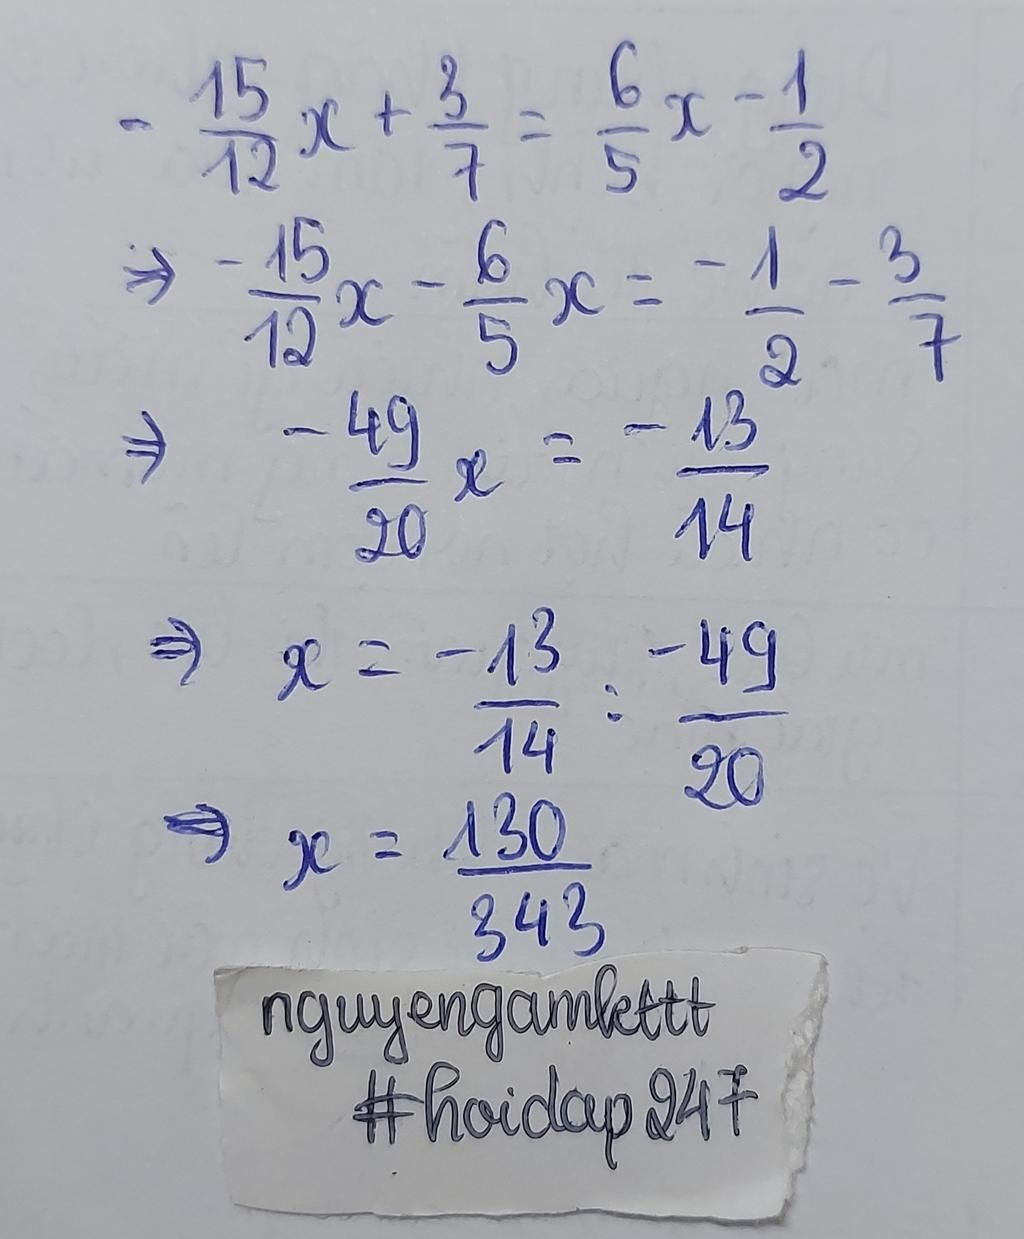 - 15/12 x + 3/7 = 6/5 x - 1/2
⇒ - 15/12 x - 6/5 x = - 1/2 - 3/7
⇒ - 49/20 x = - 13/14
⇒ x = - 13/14 : - 49/20
⇒ x = 130/343
nguyengamlettt
#hoidap247